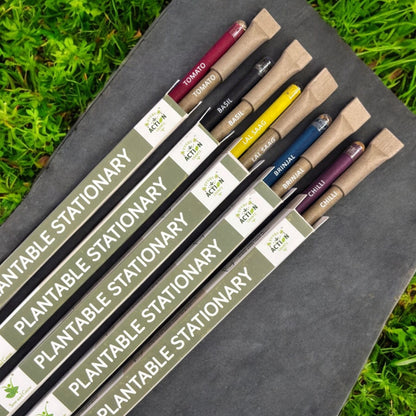 TOMATO
TOMATO
BASIL
BASIL
LAL SAAG
LAL SAAG
BRINJAL
BRINJAL
CHILLI
CHILLI
ACTION
PLANTABLE STATIONARY
ACTION
PLANTABLE STATIONARY
ACTION
PLANTABLE STATIONARY
ACTION
PLANTABLE STATIONARY
ACTION
PLANTABLE STATIONARY